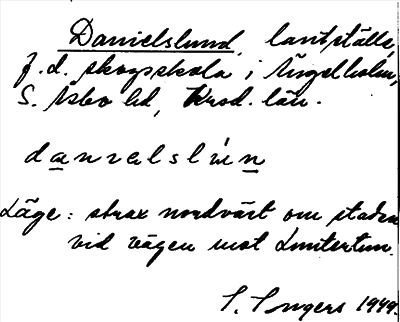 Danielslund, lantställe,
f.d. skogsskola i Ängelholm,
S. Åsbo hd, Krsd. län.
danielslún
Läge: strax nordväst om staden
vid vägen mot Luntertun.
S. Ingers 1949.